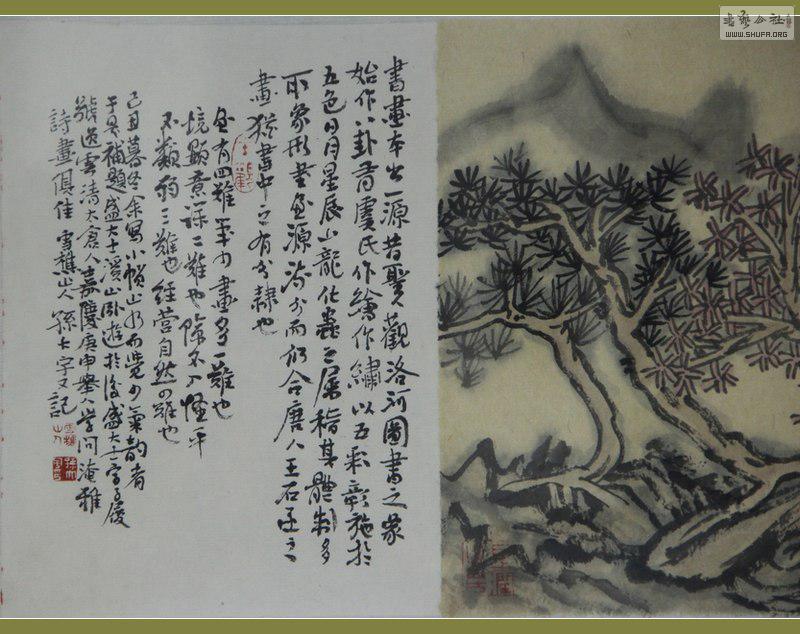 書畫本出一源昔聖觀洛河圖書之象
始作八卦有虞氏作繪作繡以五彩彰施於
五色日月星辰山龍化蟲之屬稽其體制多
取象形書畫源流分而仍合唐人王右丞之
畫猶書中之有分隸也
畫有四難筆少畫多一難也
境顯意深二難也險不入怪平
不類弱三難也經營自然四難也
己丑暮冬余寫小幀山水而覺少氣韻者
于是補題盛大士溪山臥遊於後盛大士字子履
號逸雲清太倉人嘉慶庚申舉人學問淹雅
詩畫俱佳 雪樵山人孫大宇又記
书艺公社
WWW.SHUFA.ORG